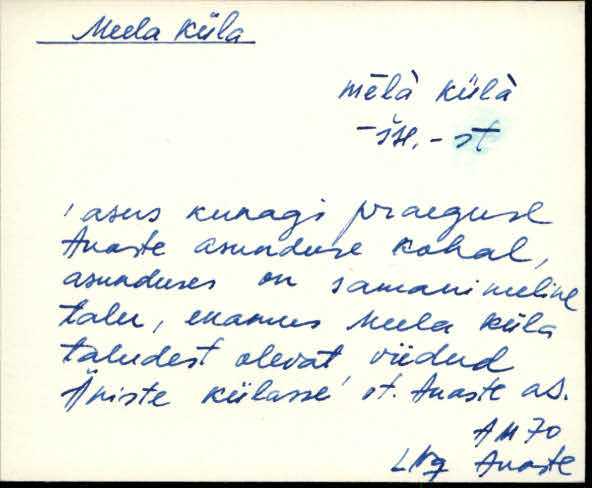 Meela küla
mēlà külà
-šse, -st
'asus kunagi praeguse
Anaste asunduse kohal,
asunduses on samanimeline
talu, enamus Meela küla
taludest olevat viidud
Äniste külasse' st. Anaste as.
AM 70
LNg Anaste